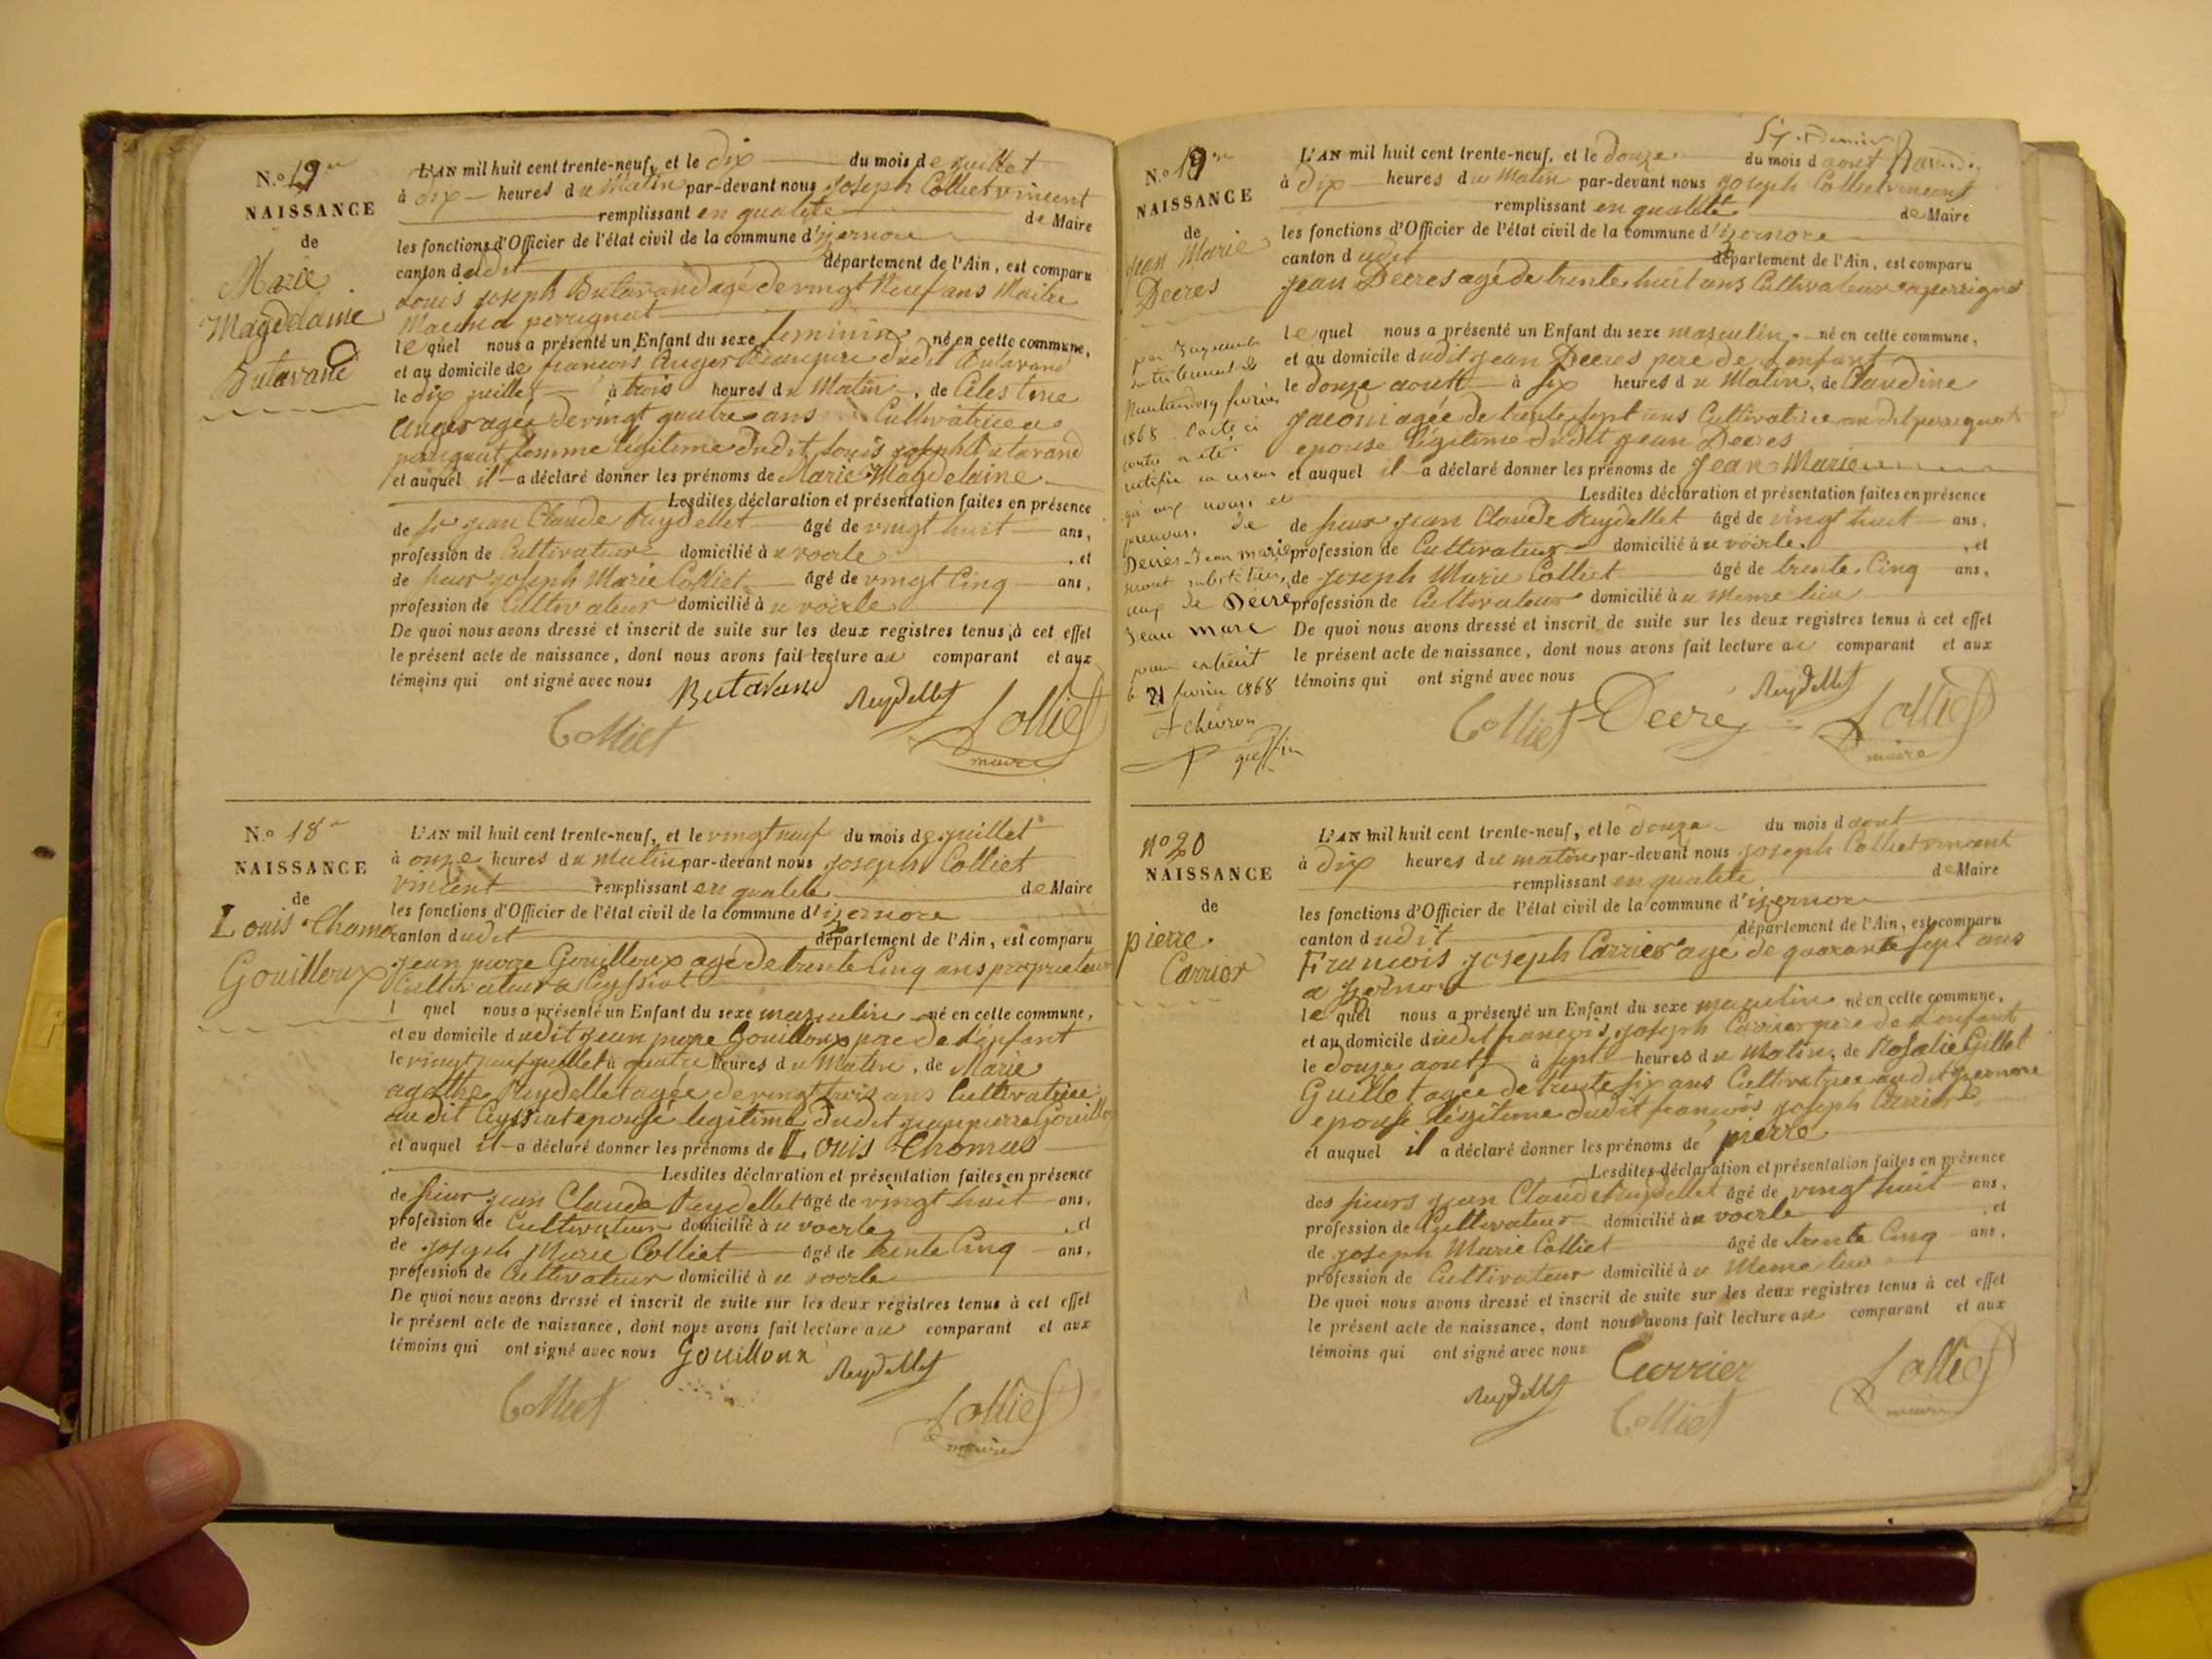 N.o 19
NAISSANCE
de
Marie
Magdelaine
Butavand
L'AN mil huit cent trente-neuf, et le dix du mois de juillet
à dix heures du Matin par-devant nous Joseph Colliet vincent
remplissant en qualité de Maire
les fonctions d'Officier de l'état civil de la commune d'izernore
canton dudit département de l'Ain, est comparu
Louis joseph Butavand agé de vingt Neuf ans Maitre
Macon a perignat
lequel nous a présenté un Enfant du sexe feminin né en cette commune,
et au domicile de francois Auger Beaupere dudit Butavand
le dix juillet à trois heures du Matin, de Celestine
Auger agée de vingt quatre ans Cultivatrice a
perignat femme legitime dudit Louis joseph Butavand
et auquel il a déclaré donner les prénoms de Marie Magdelaine
Lesdites déclaration et présentation faites en présence
de sr jean Claude Reydellet âgé de vingt huit ans,
profession de Cultivateur domicilié à u voerle, et
de sieur joseph Marie Colliet âgé de vingt Cinq ans,
profession de Cultivateur domicilié à u voerle
De quoi nous avons dressé et inscrit de suite sur les deux registres tenus à cet effet
le présent acte de naissance, dont nous avons fait lecture au comparant et aux
témoins qui ont signé avec nous Butavand Reydellet
Colliet Colliet
maire
N.o 18
NAISSANCE
de
Louis Thomas
Gouilloux
L'AN mil huit cent trente-neuf, et le vingt neuf du mois de juillet
à onze heures du matin par-devant nous joseph Colliet
vincent remplissant en qualité de Maire
les fonctions d'Officier de l'état civil de la commune d'izernore
canton dudit département de l'Ain, est comparu
jean pierre Gouilloux agé de trente Cinq ans proprietaire
Cultivateur a Ceyssiat
l quel nous a présenté un Enfant du sexe masculin né en cette commune,
et au domicile dudit jean pierre Gouilloux pere de l'enfant
le vingt neuf juillet à quatre heures du Matin, de Marie
agathe Reydellet agée de vingt trois ans Cultivatrice
au dit Ceyssiat epouse legitime dudit jean pierre Gouilloux
et auquel il a déclaré donner les prénoms de Louis Thomas
Lesdites déclaration et présentation faites en présence
de sieur jean Claude Reydellet âgé de vingt huit ans,
profession de Cultivateur domicilié à u voerle, et
de joseph Marie Colliet âgé de trente Cinq ans,
profession de Cultivateur domicilié à u voerle
De quoi nous avons dressé et inscrit de suite sur les deux registres tenus à cet effet
le présent acte de naissance, dont nous avons fait lecture au comparant et aux
témoins qui ont signé avec nous Gouilloux Reydellet
Colliet Colliet
maire
N.o 19
NAISSANCE
de
Jean Marie
Decres
par Jugement
du tribunal de
Nantua du 9 fevrier
1868 l'acte ci
contre a été
rectifié en ce sens
qu'aux noms et
prenoms de
Decres Jean marie
seront substitués
ceux de Decre
Jean Marc
pour extrait
le 21 fevrier 1868
L'AN mil huit cent trente-neuf, et le douze du mois d aout
à Dix heures du Matin par-devant nous joseph Colliet vincent
remplissant en qualité de Maire
les fonctions d'Officier de l'état civil de la commune d'izernore
canton dudit département de l'Ain, est comparu
jean Decres agé de trente huit ans Cultivateur en perrignat
lequel nous a présenté un Enfant du sexe masculin né en cette commune,
et au domicile dudit jean Decres pere de l'enfant
le douze aoust à six heures du Matin, de Claudine
jacoui agée de trente sept ans Cultivatrice au dit perrignat
epouse legitime dudit jean Decres
et auquel il a déclaré donner les prénoms de jean Marie
Lesdites déclaration et présentation faites en présence
de sieur jean Claude Reydellet âgé de vingt huit ans,
profession de Cultivateur domicilié à u voerle, et
de joseph Marie Colliet âgé de trente Cinq ans,
profession de Cultivateur domicilié à u Meme lieu
De quoi nous avons dressé et inscrit de suite sur les deux registres tenus à cet effet
le présent acte de naissance, dont nous avons fait lecture au comparant et aux
témoins qui ont signé avec nous Reydellet
Colliet Decre Colliet
maire
no 20
NAISSANCE
de
pierre
Carrier
L'AN mil huit cent trente-neuf, et le douze du mois d aout
à Dix heures du matin par-devant nous joseph Colliet vincent
remplissant en qualité de Maire
les fonctions d'Officier de l'état civil de la commune d'izernore
canton dudit département de l'Ain, est comparu
Francois joseph Carrier agé de quarante sept ans
a izernore
le quel nous a présenté un Enfant du sexe masculin né en cette commune,
et au domicile dudit francois joseph Carrier pere de l'enfant
le douze aoust à sept heures du Matin, de Rosalie Gillet
Guillet agée de trente six ans Cultivatrice audit izernore
epouse legitime dudit francois joseph Carrier
et auquel il a déclaré donner les prénoms de pierre
Lesdites déclaration et présentation faites en présence
des sieurs jean Claude Reydellet âgé de vingt huit ans,
profession de Cultivateur domicilié à u voerle, et
de joseph Marie Colliet âgé de trente Cinq ans,
profession de Cultivateur domicilié à u Meme lieu
De quoi nous avons dressé et inscrit de suite sur les deux registres tenus à cet effet
le présent acte de naissance, dont nous avons fait lecture au comparant et aux
témoins qui ont signé avec nous Carrier
Reydellet Colliet Colliet
maire